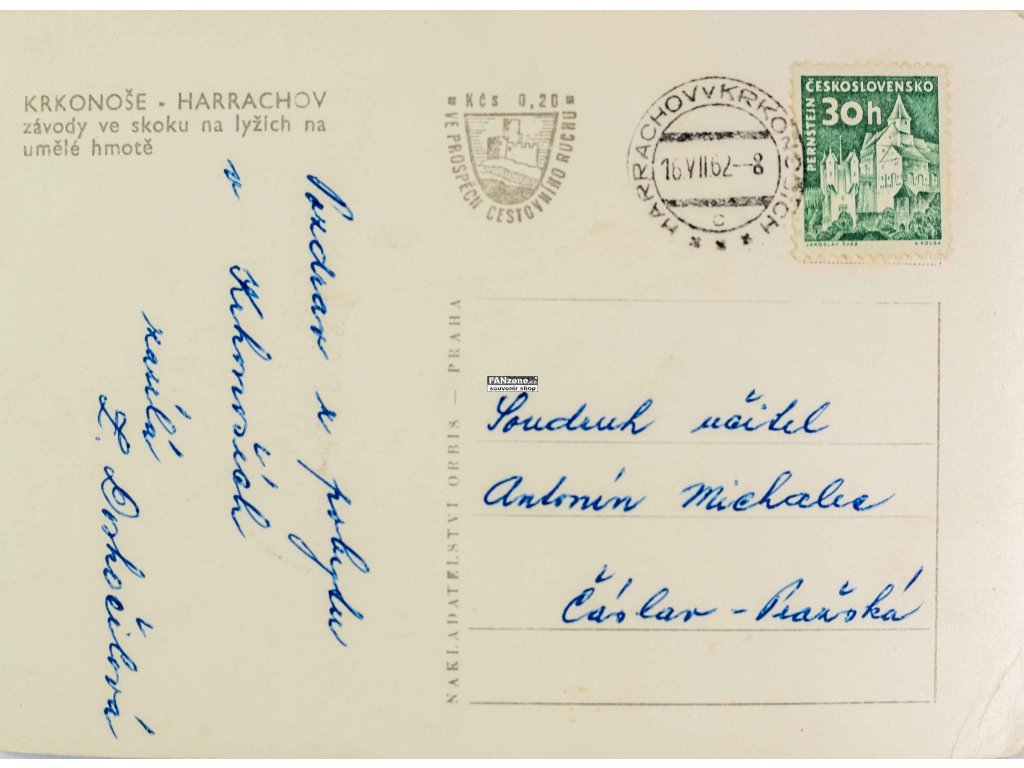 KRKONOŠE - HARRACHOV
závody ve skoku na lyžích na
umělé hmotě
Kčs 0,20
VE PROSPĚCH CESTOVNÍHO RUCHU
HARRACHOV V KRKONOŠÍCH
16.VII.62--8
c
ČESKOSLOVENSKO
30h
PERNŠTEJN
JAROSLAV ŠVÁB
Pozdrav z pobytu
v Krkonoších
zasílá
NAKLADATELSTVÍ ORBIS — PRAHA
FANzone.cz
souvenir shop
Soudruh učitel
Antonín Michalec
Čáslav - Pražská